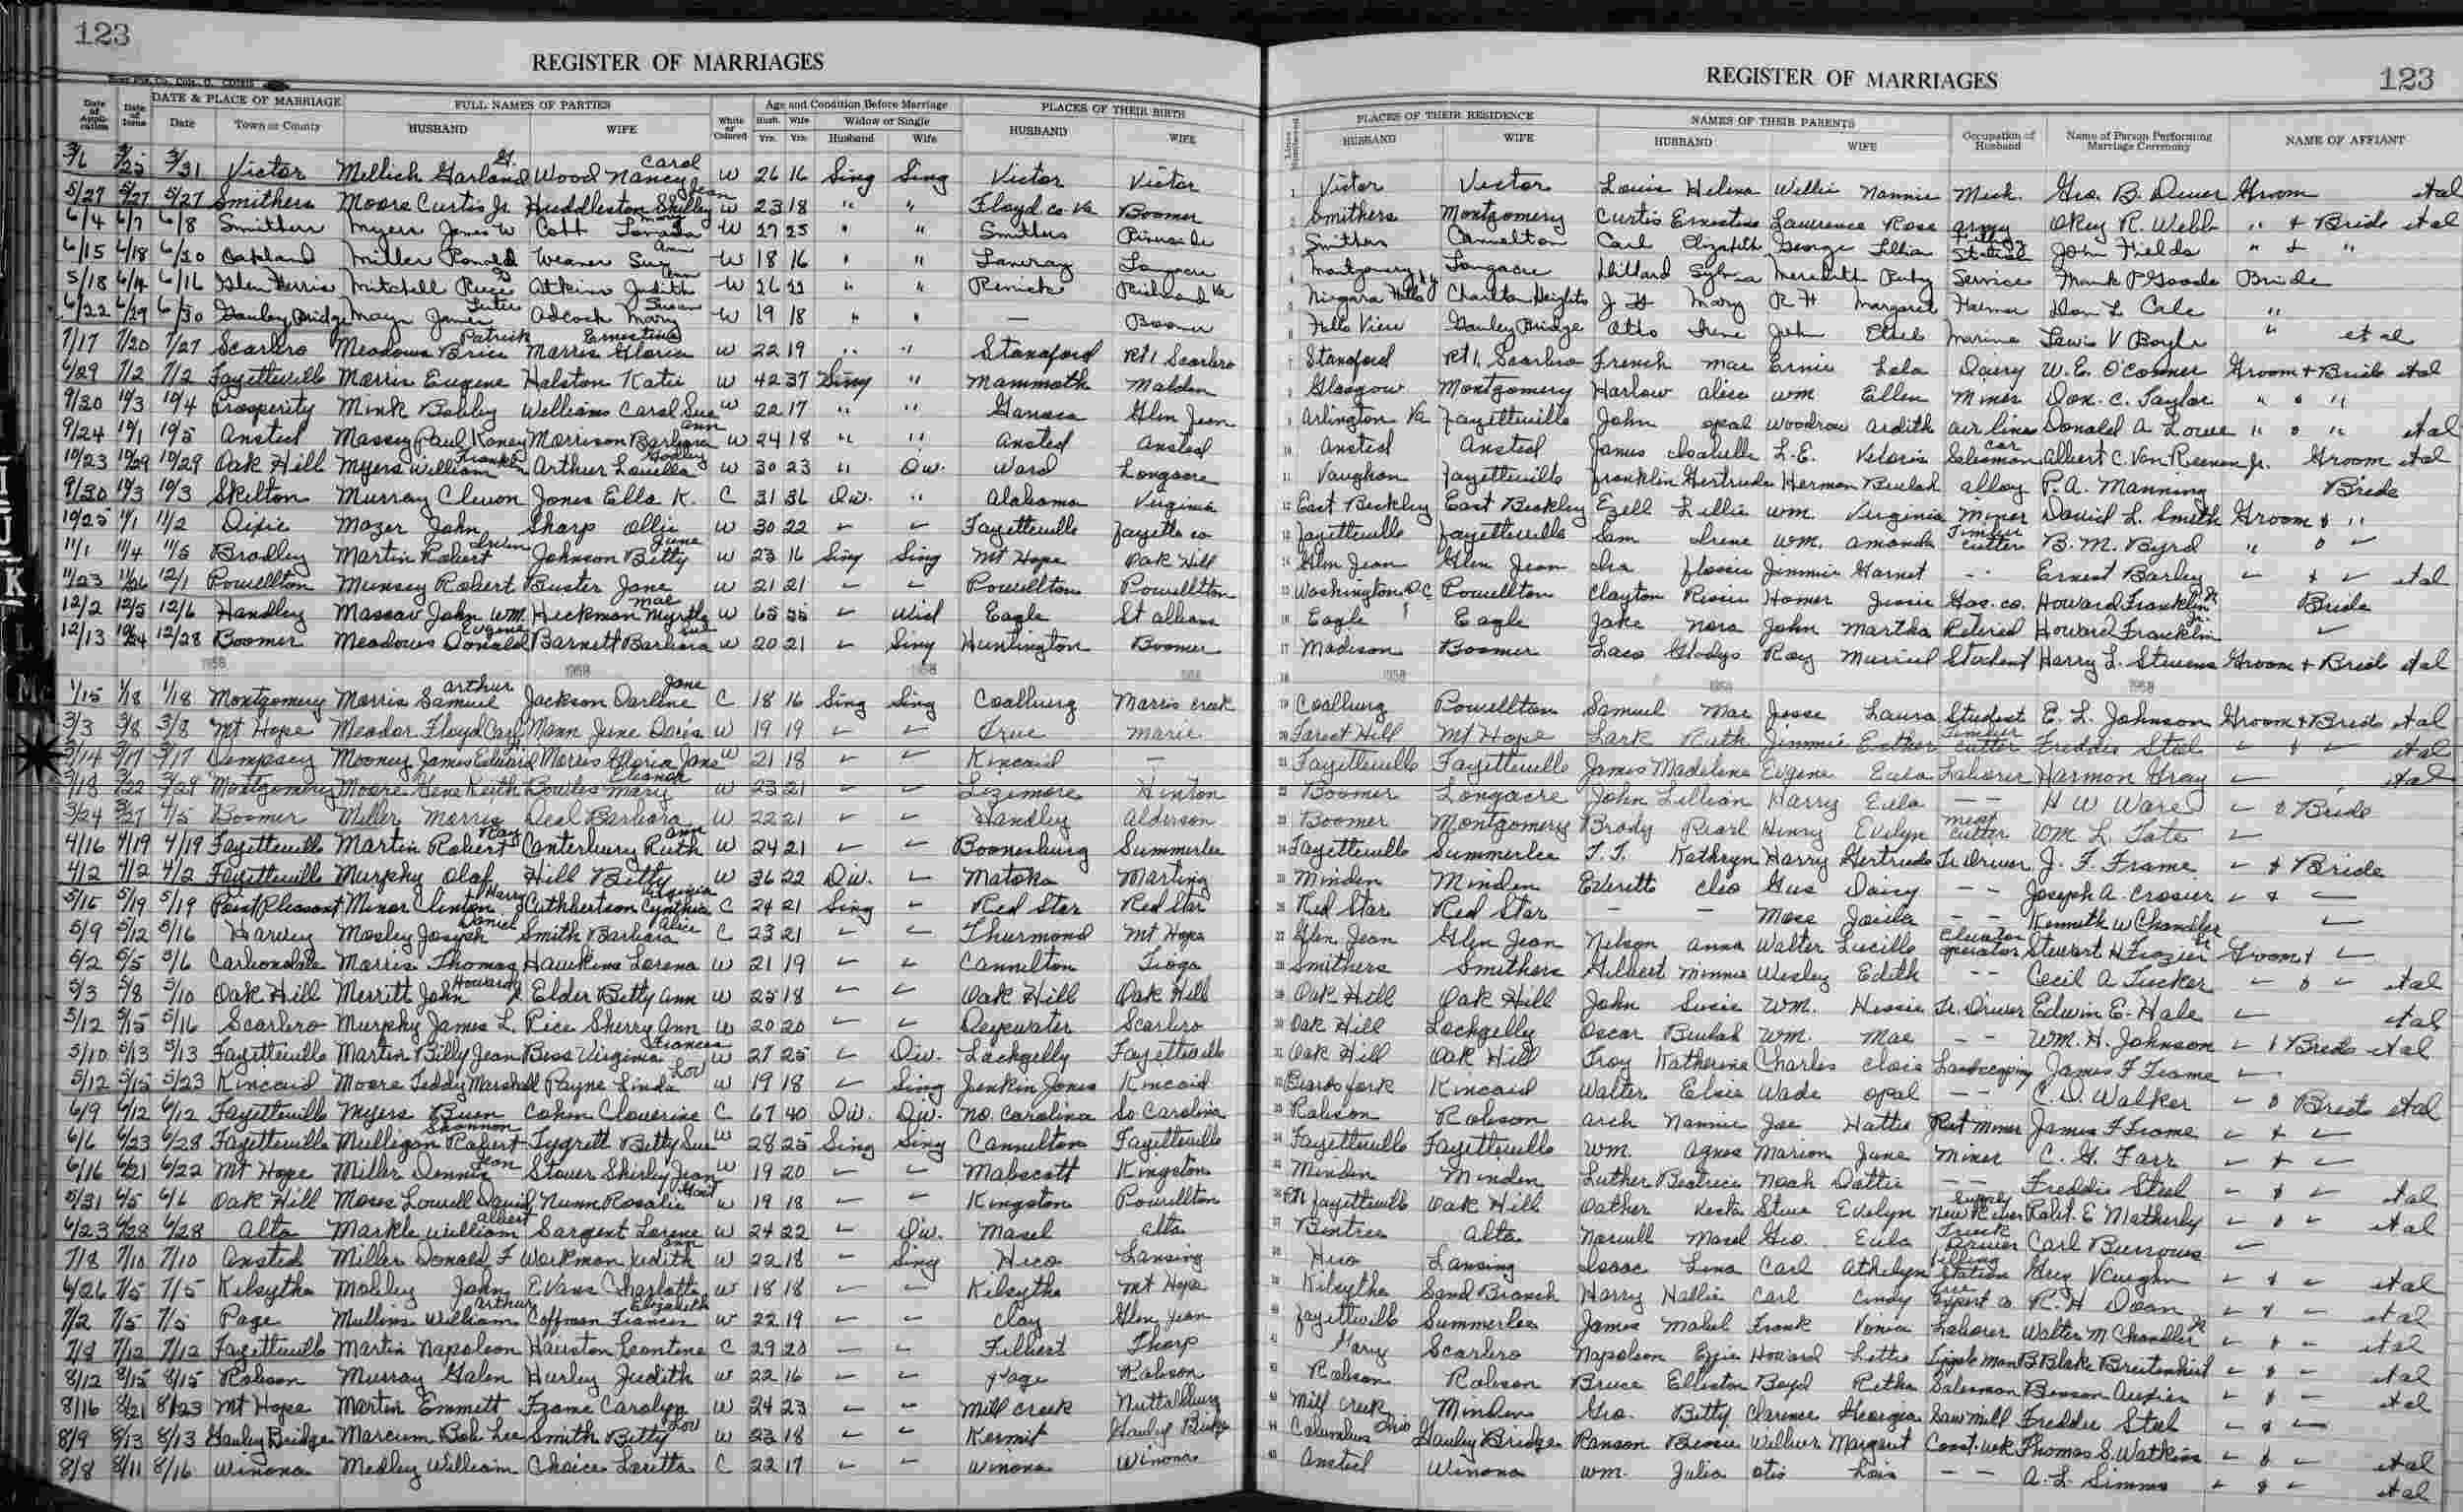 123
REGISTER OF MARRIAGES
Date of Application Date of Issue DATE & PLACE OF MARRIAGE FULL NAMES OF PARTIES White or Colored Age and Condition Before Marriage PLACES OF THEIR BIRTH
Date Town or County HUSBAND WIFE Husb. Yrs. Wife Yrs. Widow or Single Husband Wife HUSBAND WIFE
3/31 Victor Mellich Garland G. Wood Nancy Carol W 26 16 Sing Sing Victor Victor
5/27 5/27 5/27 Smithers Moore Curtis Jr. Huddleston Shirley Jean W 23 18 " " Floyd co. Va Boomer
6/4 6/7 6/8 Smithers Myers James W Cobb W 27 25 " " Smithers
6/15 6/18 6/20 Oakland Miller Ronald Weaver Sue Ann W 18 16 " " Longacre
5/18 6/14 6/16 Glen Ferris Mitchell Atkins Judith Ann W 26 22 " " Renick Richmond Va
6/22 6/29 6/30 Gauley Bridge Mays James Adcock Mary Susan W 19 18 " " — Boomer
7/17 7/20 7/27 Scarbro Meadows Brice Patrick Morris Gloria Ernestine W 22 19 " " Stanaford Rt 1 Scarbro
6/29 7/2 7/2 Fayetteville Morris Eugene Halston Katie W 42 37 Sing " Mammoth Malden
9/20 10/3 10/4 Prosperity Mink Bobby Williams Carol Sue W 22 17 " " Glen Jean
9/24 10/1 10/5 Ansted Massey Paul Morrison Barbara Ann W 24 18 " " Ansted Ansted
10/23 10/29 10/29 Oak Hill Myers William Franklin Arthur Louella W 30 23 " Div. Ward Longacre
9/30 10/3 10/3 Skelton Murray Clevon Jones Ella K. C 31 36 Div. " Alabama Virginia
10/25 11/1 11/2 Dixie Mozer John Sharp Ollie W 30 22 " " Fayetteville Fayette co
11/1 11/4 11/5 Bradley Martin Robert Johnson Betty June W 23 16 Sing Sing Mt Hope Oak Hill
11/23 11/26 12/1 Powellton Munsey Robert Buster Jane W 21 21 " " Powellton Powellton
12/2 12/5 12/6 Handley John Wm. Heckman Myrtle Mae W 65 55 " Wid Eagle St Albans
12/13 12/28 Boomer Meadows Donald Eugene Barnett Barbara Sue W 20 21 " Sing Huntington Boomer
1958 1958 1958 1958
1/15 1/18 1/18 Montgomery Morris Samuel Arthur Jackson Darlene Jane C 18 16 Sing Sing Coalburg Morris creek
3/3 3/8 3/8 Mt Hope Meador Floyd Carl Mann June Doris W 19 19 " " True Marie
3/14 3/17 3/17 Dempsey Mooney James Edward Morris Gloria Jane W 21 18 " " Kincaid —
3/18 3/22 3/29 Montgomery Moore Gene Keith Bowles Mary Eleanor W 23 21 " " Lizemore Hinton
3/24 3/27 4/5 Boomer Miller Morris Deal Barbara W 22 21 " " Handley Alderson
4/16 4/19 4/19 Fayetteville Martin Robert Ray Canterbury Ruth Ann W 24 21 " " Boonesburg Summerlee
4/2 4/2 4/2 Fayetteville Murphy Olaf Hill Betty W 36 22 Div. " Matoka Marting
5/16 5/19 5/19 Point Pleasant Minor Clinton Harry Cuthbertson Cynthia Virginia C 24 21 Sing " Red Star Red Star
5/9 5/12 5/16 Harvey Mosley Joseph Daniel Smith Barbara Alice C 23 21 " " Thurmond Mt Hope
5/2 5/5 5/6 Carbondale Morris Thomas Hawkins Lorena W 21 19 " " Cannelton Tioga
5/3 5/8 5/10 Oak Hill Merritt John Howard Elder Betty Ann W 25 18 " " Oak Hill Oak Hill
5/12 5/15 5/16 Scarbro Murphy James L. Rice Sherry Ann W 20 20 " " Deepwater Scarbro
5/10 5/13 5/13 Fayetteville Martin Billy Jean Bess Virginia Frances W 27 25 " Div. Lochgelly Fayetteville
5/12 5/15 5/23 Kincaid Moore Teddy Marshall Payne Linda Lov W 19 18 " Sing Jenkin Jones Kincaid
6/9 6/12 6/12 Fayetteville Myers Buen Cohen Cloverine C 67 40 Div. Div. No. Carolina So Carolina
6/6 6/23 6/28 Fayetteville Mulligan Robert Shannon Tygrett Betty Sue W 28 25 Sing Sing Cannelton Fayetteville
6/16 6/21 6/22 Mt Hope Miller Dennis Jean Stover Shirley Jean W 19 20 " " Mabscott Kingston
5/31 6/5 6/6 Oak Hill Moses Lowell David Nunn Rosalie W 19 18 " " Kingston Powellton
6/23 6/28 6/28 Alta Markle William Albert Sargent Lorene W 24 22 " Div. Masel Alta
7/8 7/10 7/10 Ansted Miller Donald F Workman Judith Ann W 22 18 " Sing Hico Lansing
6/26 7/5 7/5 Kilsythe Mobley John Evans Charlotte W 18 18 " " Kilsythe Mt Hope
7/2 7/5 7/5 Page Mullins William Arthur Coffman Frances Elizabeth W 22 19 " " Clay Glen Jean
7/8 7/12 7/12 Fayetteville Martin Napoleon Hairston Leontine C 29 20 " " Filbert Tharp
8/12 8/15 8/15 Robson Murray Galen Hurley Judith W 22 16 " " Page Robson
8/16 8/21 8/23 Mt Hope Martin Emmett Frame Carolyn W 24 23 " " Mill Creek Nuttallburg
8/9 8/13 8/13 Gauley Bridge Marcum Bob Lee Smith Betty Lou W 23 18 " " Kermit Gauley Bridge
8/8 8/11 8/16 Winona Medley William Choice Loretta C 22 17 " " Winona Winona
REGISTER OF MARRIAGES
123
Lines Numbered PLACES OF THEIR RESIDENCE NAMES OF THEIR PARENTS Occupation of Husband Name of Person Performing Marriage Ceremony NAME OF AFFIANT
HUSBAND WIFE HUSBAND WIFE
1 Victor Victor Louis Helena Willie Nannie Mech. Geo. B. Groom etal
2 Smithers Montgomery Curtis Ernestine Lawrence Rose Army Okey R. Webb " & Bride etal
3 Smithers Cannelton Carl Elizabeth George Lillian Filling Station John Fields " & "
4 Montgomery Longacre Hillard Sylvia Meredith Ruby Service Mark P Goode Bride
5 Niagara Falls Charlton Heights J H Mary R H Margaret Don L Cale "
6 Falls View Gauley Bridge Otho Irene John Ethel Marine Lewis V Boyle " et al
7 Stanaford Rt 1, Scarbro French Mae Ernie Lela Dairy W. E. O'Conner Groom & Bride etal
8 Glasgow Montgomery Harlow Alice Wm Ellen Miner Don. C. Taylor " & "
9 Arlington Va Fayetteville John Opal Woodrow Ardith Air lines Donald A Lowe " & " etal
10 Ansted Ansted James Isabelle L.E. Car Salesman Albert C. Van Reenen Jr. Groom etal
11 Vaughan Fayetteville Franklin Gertrude Herman Beulah Alloy P. A. Manning Bride
12 East Beckley East Beckley Ezell Lillie Wm. Virginia Miner David L. Smith Groom & "
13 Fayetteville Fayetteville Sam Irene Wm. Amanda Timber Cutter B. M. Byrd " & "
14 Glen Jean Glen Jean Ira Flossie Jimmie Garnet -- Ernest Barley " & " etal
15 Washington DC Powellton Clayton Homer Jessie Gas. co. Howard Franklin Jr Bride
16 Eagle Eagle Jake Nora John Martha Retired Howard Franklin Jr. "
17 Madison Boomer Gladys Ray Muriel Student Harry L. Stevens Groom & Bride etal
18 1958 1958 1958
19 Coalburg Powellton Samuel Mae Jesse Laura Student E. L. Johnson Groom & Bride etal
20 Forest Hill Mt Hope Lark Ruth Jimmie Esther Timber Cutter Freddie Steel " & " etal
21 Fayetteville Fayetteville James Madeline Eugene Eula Laborer Harmon Gray " etal
22 Boomer Longacre John Lillian Harry Eula -- H W Ware " & Bride
23 Boomer Montgomery Brady Pearl Henry Evelyn Meat Cutter Wm L. Tate "
24 Fayetteville Summerlee T.T. Kathryn Harry Gertrude Tr. Driver J. F. Frame " & Bride
25 Minden Minden Everitt Cleo Gus Daisy -- Joseph A. Crosier " & "
26 Red Star Red Star — — Mose -- Kenneth W Chandler "
27 Glen Jean Glen Jean Nelson Anna Walter Lucille Elevator operator Stewart H Frazier Jr Groom & "
28 Smithers Smithers Gilbert Minnie Wesley Edith -- Cecil A Tucker " & " etal
29 Oak Hill Oak Hill John Susie Wm. Hessie Tr. Driver Edwin E. Hale " etal
30 Oak Hill Lochgelly Oscar Beulah Wm. Mae -- Wm. H. Johnson " & Bride etal
31 Oak Hill Oak Hill Troy Katherine Charles Landscaping James F Frame "
32 Beards fork Kincaid Walter Elsie Wade Opal -- C. D. Walker " & Bride etal
33 Robson Robson Arch Nannie Joe Hattie Ret miner James F Frame " & "
34 Fayetteville Fayetteville Wm. Agnes Marion June Miner C. G. Farr " & "
35 Minden Minden Luther Beatrice Noah Dottie -- Freddie Steel " & " etal
36 Fayetteville Oak Hill Oather Steve Evelyn New River Supply Robt. E Matherly " & " etal
37 Bentree Alta Norvell Masel Geo. Eula Truck Driver Carl Burrows "
38 Hico Lansing Isaac Lena Carl Athelyn Filling Station Guy Vaughn " & " etal
39 Kilsythe Sand Branch Harry Hallie Carl Cindy R. H Dean " & " etal
40 Fayetteville Summerlee James Mabel Frank Laborer Walter M Chandler Jr " & " etal
41 Gary Scarbro Napoleon Howard Lettie Tipple man B Blake Breitenhirt " & " etal
42 Robson Robson Bruce Elliston Boyd Retha Salesman " & " etal
43 Mill Creek Minden Geo. Betty Clarence Georgia Sawmill Freddie Steel " & "
44 Columbus Ohio Gauley Bridge Ranson Bessie Wilbur Margaret Const. wk Thomas S. Watkins " & " etal
45 Ansted Winona Wm. Julia Otis Lois -- A. L. Simms " & " etal